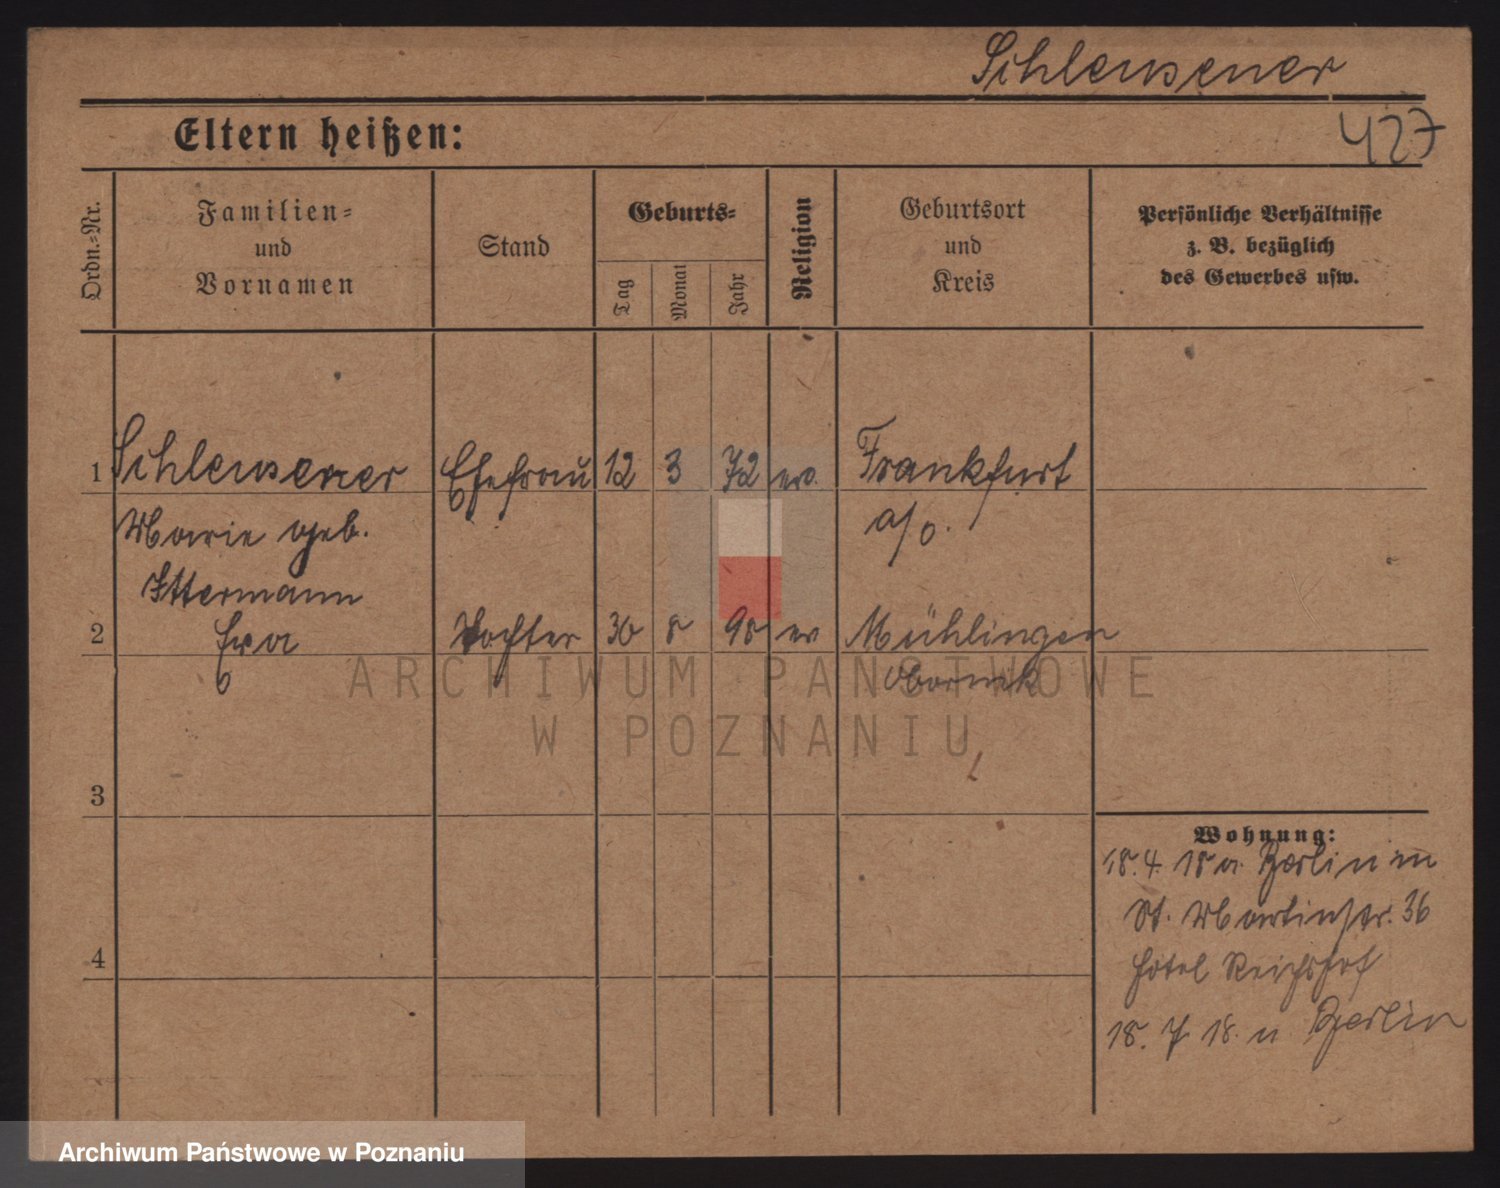 Schleusener
427
Eltern heißen:
Ordn.-Nr.
Familien-
und
Vornamen
Stand
Geburts-
Tag
Monat
Jahr
Religion
Geburtsort
und
Kreis
Persönliche Verhältnisse
z. B. bezüglich
des Gewerbes usw.
1 Schleusener Ehefrau 12 3 72 ev. Frankfurt
Marie geb. a/o.
Ittermann
2 Eva Tochter 30 8 98 ev Mühlingen
Obornik
3
4
Wohnung:
18.4. 18 a. Berlin in
St. Martinstr. 36
Hotel Reichshof
18. 7. 18. n Berlin
ARCHIWUM PAŃSTWOWE
W POZNANIU
Archiwum Państwowe w Poznaniu